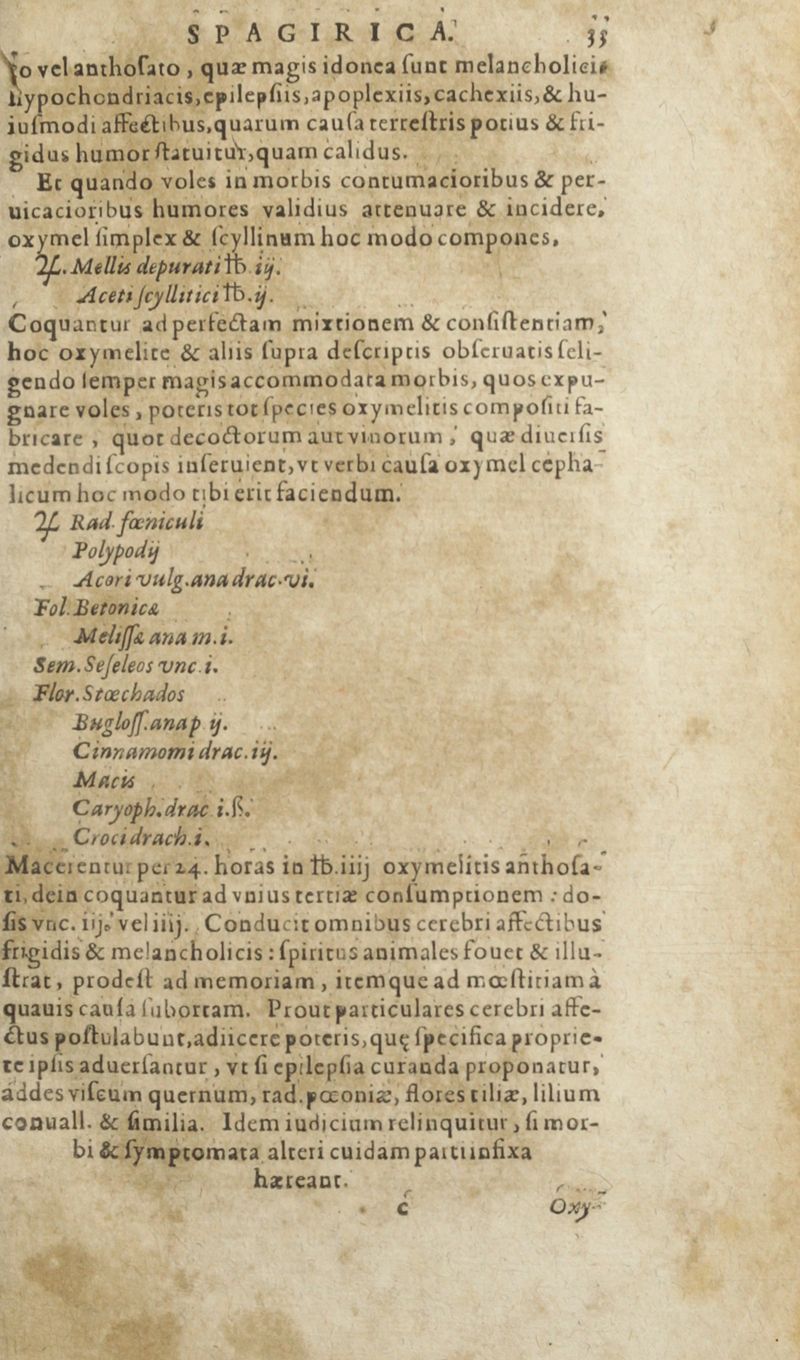 SPAGIRICA. 33
ſo vel anthoſato, quæ magis idonea ſunt melancholicis
hypochondriacis, epilepſiis, apoplexiis, cachexiis, & hu-
iuſmodi affectibus, quarum cauſa terreſtris potius & fri-
gidus humor ſtatuitur, quam calidus.
Et quando voles in morbis contumacioribus & per-
uicacioribus humores validius attenuare & incidere,
oxymel ſimplex & ſcyllinum hoc modo compones,
℞. Mellis depurati ℔ iij.
Aceti ſcyllitici ℔.ij.
Coquantur ad perfectam mixtionem & conſiſtentiam,
hoc oxymelite & aliis ſupra deſcriptis obſeruatis ſeli-
gendo ſemper magis accommodata morbis, quos expu-
gnare voles, poteris tot ſpecies oxymelitis compoſiti fa-
bricare, quot decoctorum aut vinorum, quæ diuerſis
medendi ſcopis inſeruient, vt verbi cauſa oxymel cepha-
licum hoc modo tibi erit faciendum.
℞ Rad. fœniculi
Polypodij
Acori vulg. ana drac. vi.
Fol. Betonicæ
Meliſſæ ana m.i.
Sem. Seſeleos vnc. i.
Flor. Stœchados
Bugloſſ. ana p ij.
Cinnamomi drac. iij.
Macis
Caryoph. drac i.ß.
Croci drach. i.
Macerentur per 24. horas in ℔.iiij oxymelitis anthoſa-
ti, dein coquantur ad vnius tertiæ conſumptionem : do-
ſis vnc. iij. vel iiij. Conducit omnibus cerebri affectibus
frigidis & melancholicis : ſpiritus animales fouet & illu-
ſtrat, prodeſt ad memoriam, itemque ad mœſtitiam à
quauis cauſa ſubortam. Prout particulares cerebri affe-
ctus poſtulabunt, adiicere poteris, quę ſpecifica proprie-
te ipſis aduerſantur, vt ſi epilepſia curanda proponatur,
addes viſcum quernum, rad. pœoniæ, flores tiliæ, lilium
conuall. & ſimilia. Idem iudicium relinquitur, ſi mor-
bi & ſymptomata alteri cuidam parti infixa
hæreant.
c Oxy-